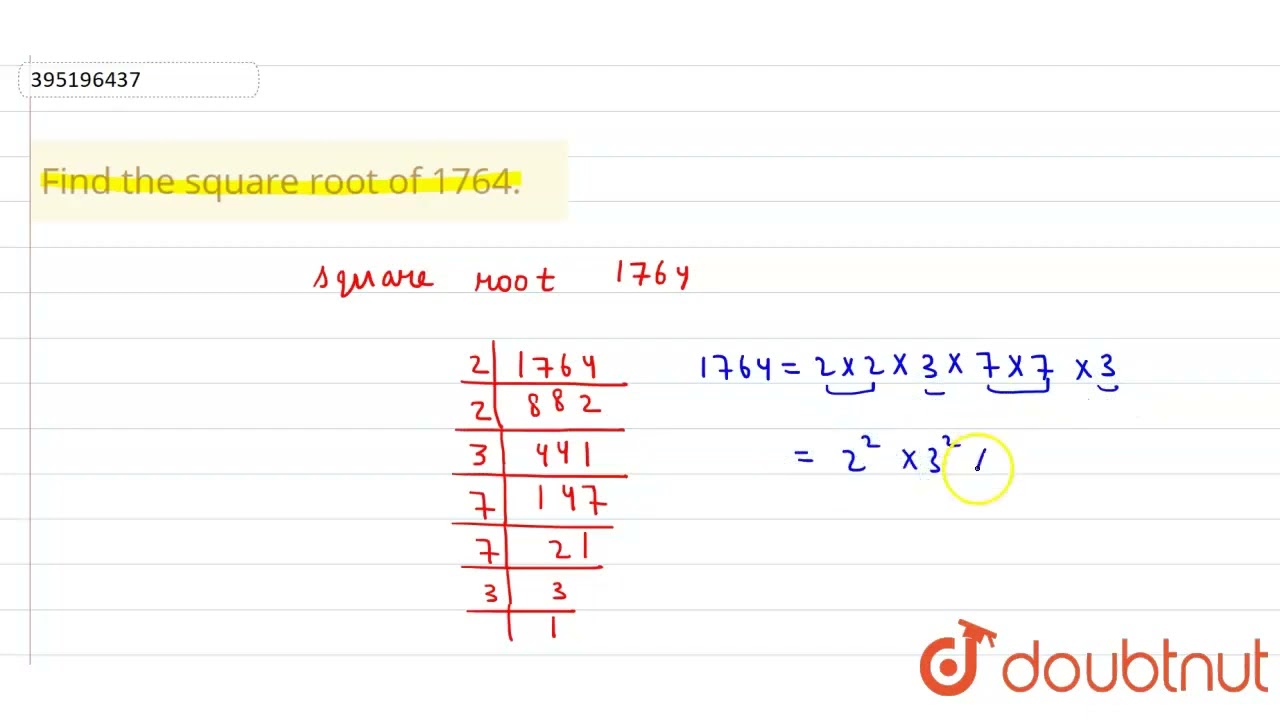 395196437
Find the square root of 1764.
square root 1764
2 | 1764
2 | 882
3 | 441
7 | 147
7 | 21
3 | 3
| 1
1764 = 2 × 2 × 3 × 7 × 7 × 3
= 2² × 3²
doubtnut